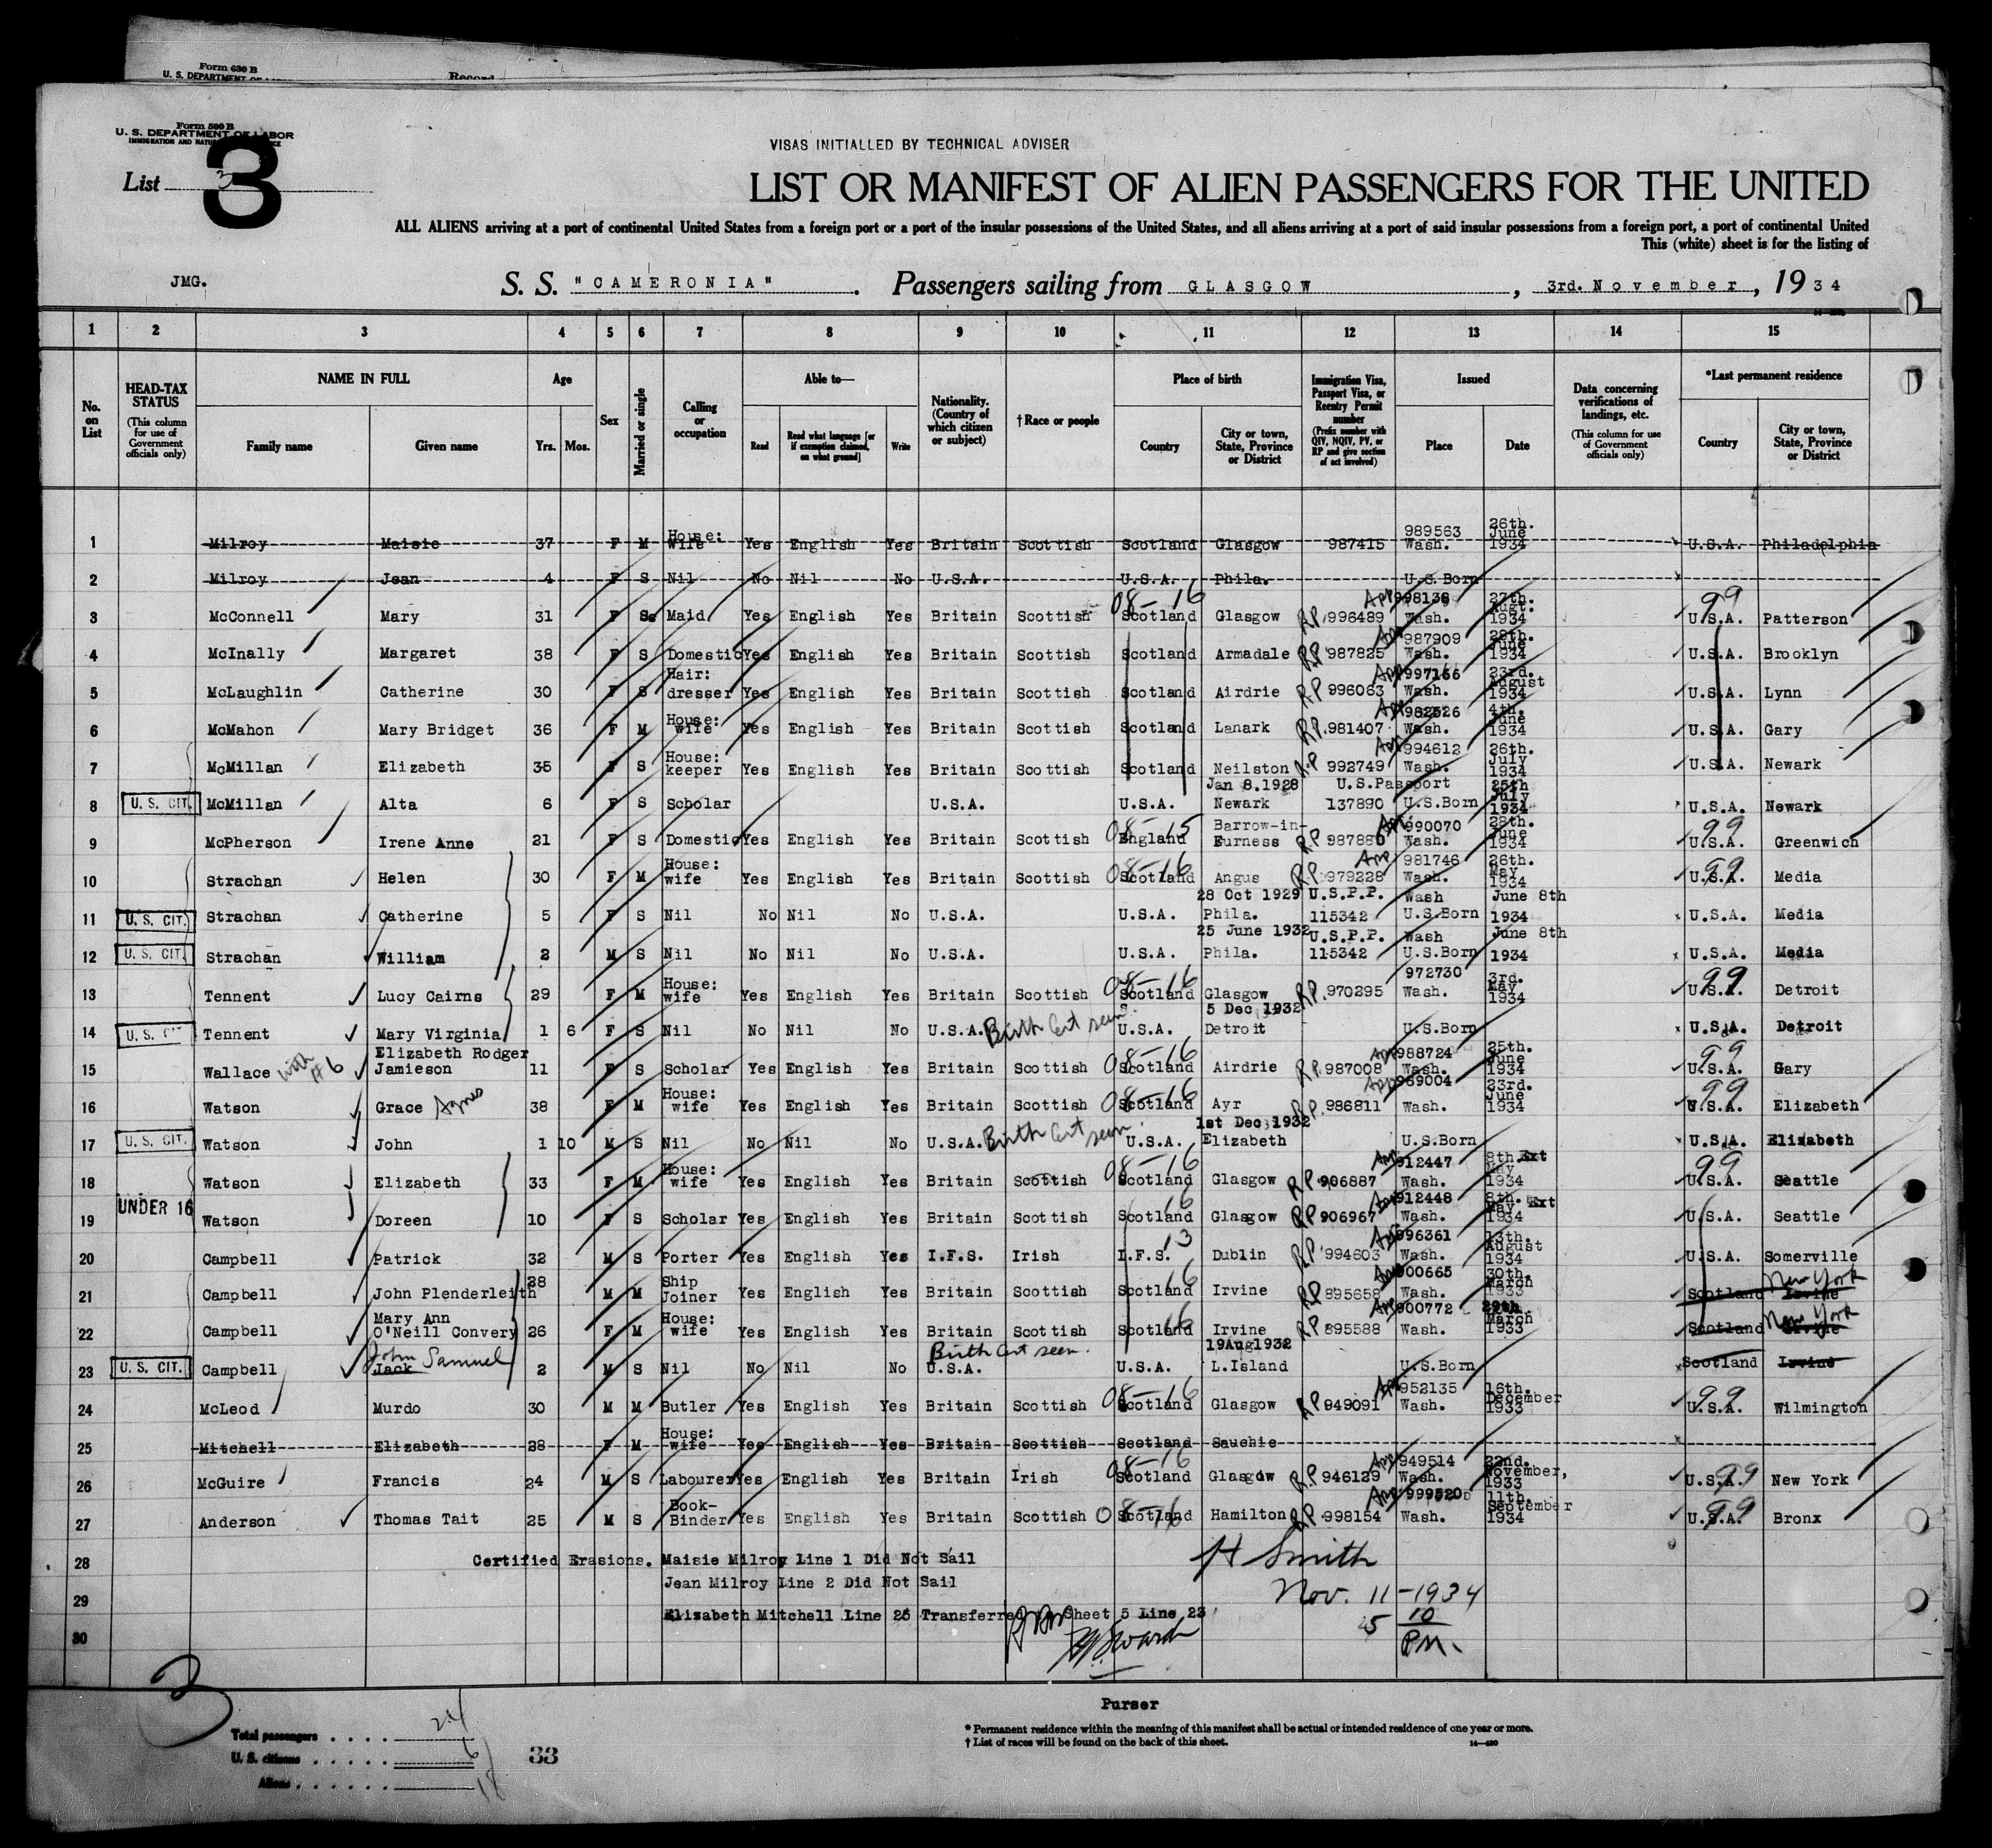 Form 630 B
U. S. DEPARTMENT OF
Record
Form 500 B
U. S. DEPARTMENT OF LABOR
IMMIGRATION AND
3
VISAS INITIALLED BY TECHNICAL ADVISER
List 3
LIST OR MANIFEST OF ALIEN PASSENGERS FOR THE UNITED
ALL ALIENS arriving at a port of continental United States from a foreign port or a port of the insular possessions of the United States, and all aliens arriving at a port of said insular possessions from a foreign port, a port of continental United
This (white) sheet is for the listing of
JMG. S. S. "CAMERONIA". Passengers sailing from GLASGOW, 3rd. November, 1934
1 2 3 4 5 6 7 8 9 10 11 12 13 14 15
No. on List
HEAD-TAX STATUS (This column for use of Government officials only)
NAME IN FULL
Family name Given name
Age Yrs. Mos.
Sex
Married or single
Calling or occupation
Able to—
Read Read what language [or if exemption claimed, on what ground] Write
Nationality. (Country of which citizen or subject)
† Race or people
Place of birth
Country City or town, State, Province or District
Immigration Visa, Passport Visa, or Reentry Permit number (Prefix number with QIV, NQIV, PV, or RP and give section of act involved)
Issued
Place Date
Data concerning verifications of landings, etc. (This column for use of Government officials only)
*Last permanent residence
Country City or town, State, Province or District
1 Milroy Maisie 37 F M House: Wife Yes English Yes Britain Scottish Scotland Glasgow 987415 989563 Wash. 26th. June 1934 U.S.A. Philadelphia
2 Milroy Jean 4 F S Nil No Nil No U.S.A. U.S.A. Phila. U.S.Born
3 McConnell Mary 31 F S Maid Yes English Yes Britain Scottish 08-16 Scotland Glasgow RP 996489 App 998138 Wash. 27th. Augt: 1934 99 U.S.A. Patterson
4 McInally Margaret 38 F S Domestic Yes English Yes Britain Scottish Scotland Armadale RP 987825 App 987909 Wash. 28th. June 1934 U.S.A. Brooklyn
5 McLaughlin Catherine 30 F S Hair: dresser Yes English Yes Britain Scottish Scotland Airdrie RP 996063 App 997166 Wash. 23rd. August 1934 U.S.A. Lynn
6 McMahon Mary Bridget 36 F M House: wife Yes English Yes Britain Scottish Scotland Lanark RP. 981407 App 982526 Wash. 4th. June 1934 U.S.A. Gary
7 McMillan Elizabeth 35 F S House: keeper Yes English Yes Britain Scottish Scotland Neilston RP 992749 App 994612 Wash. 26th. July 1934 U.S.A. Newark
8 U. S. CIT. McMillan Alta 6 F S Scholar U.S.A. U.S.A. Jan 8.1928 Newark U.S.Passport 137890 U.S.Born 25th July 1934 U.S.A. Newark
9 McPherson Irene Anne 21 F S Domestic Yes English Yes Britain Scottish 08-15 England Barrow-in-Furness RP 987880 App 990070 Wash. 28th. June 1934 99 U.S.A. Greenwich
10 Strachan Helen 30 F M House: wife Yes English Yes Britain Scottish 08-16 Scotland Angus RP 979228 App 981746 Wash. 26th. May 1934 99 U.S.A. Media
11 U. S. CIT. Strachan Catherine 5 F S Nil No Nil No U.S.A. U.S.A. 28 Oct 1929 Phila. U.S.P.P. 115342 Wash U.S.Born June 8th 1934 U.S.A. Media
12 U. S. CIT. Strachan William 2 M S Nil No Nil No U.S.A. U.S.A. 25 June 1932 Phila. U.S.P.P. 115342 Wash U.S.Born June 8th 1934 U.S.A. Media
13 Tennent Lucy Cairns 29 F M House: wife Yes English Yes Britain Scottish 08-16 Scotland Glasgow RP. 970295 972730 Wash. 3rd. May 1934 99 U.S.A. Detroit
14 U. S. Tennent Mary Virginia 1 6 F S Nil No Nil No U.S.A. Birth Cert seen U.S.A. 5 Dec 1932 Detroit U.S.Born U.S.A. Detroit
15 Wallace with #6 Elizabeth Rodger Jamieson 11 F S Scholar Yes English Yes Britain Scottish 08-16 Scotland Airdrie RP. 987008 App 988724 Wash. 25th. June 1934 99 U.S.A. Gary
16 Watson Grace Agnes 38 F M House: wife Yes English Yes Britain Scottish 08-16 Scotland Ayr RP. 986811 App 989004 Wash. 23rd. June 1934 99 U.S.A. Elizabeth
17 U. S. CIT. Watson John 1 10 M S Nil No Nil No U.S.A. Birth Cert seen. U.S.A. 1st Dec 1932 Elizabeth U.S.Born U.S.A. Elizabeth
18 Watson Elizabeth 33 F M House: wife Yes English Yes Britain Scottish 08-16 Scotland Glasgow RP 906887 App 912447 Wash. 8th Ext May 1934 99 U.S.A. Seattle
19 UNDER 16 Watson Doreen 10 F S Scholar Yes English Yes Britain Scottish 16 Scotland Glasgow RP 906967 App 912448 Wash. 8th. Ext May 1934 U.S.A. Seattle
20 Campbell Patrick 32 M S Porter Yes English Yes I.F.S. Irish 13 I.F.S. Dublin RP 994603 App 996361 Wash. 13th. August 1934 U.S.A. Somerville
21 Campbell John Plenderleith 28 M M Ship Joiner Yes English Yes Britain Scottish 16 Scotland Irvine RP 895658 App 900665 Wash. 30th. March 1933 Scotland Irvine New York
22 Campbell Mary Ann O'Neill Convery 26 F M House: wife Yes English Yes Britain Scottish 16 Scotland Irvine RP 895588 App 900772 Wash. March 1933 Scotland Irvine New York
23 U. S. CIT. Campbell Jack John Samuel 2 M S Nil No Nil No U.S.A. Birth Cert seen. U.S.A. 19Aug1932 L.Island U.S.Born Scotland Irvine
24 McLeod Murdo 30 M M Butler Yes English Yes Britain Scottish 08-16 Scotland Glasgow RP 949091 App 952135 Wash. 16th. December 1933 99 U.S.A. Wilmington
25 Mitchell Elizabeth 28 F M House: wife Yes English Yes Britain Scottish Scotland Sauchie
26 McGuire Francis 24 M S Labourer Yes English Yes Britain Irish 08-16 Scotland Glasgow R.P. 946129 App 949514 Wash. 22nd. November, 1933 99 U.S.A. New York
27 Anderson Thomas Tait 25 M S Book-Binder Yes English Yes Britain Scottish 08-16 Scotland Hamilton RP. 998154 App 999520 Wash. 11th. September 1934 99 U.S.A. Bronx
28 Certified Erasions. Maisie Milroy Line 1 Did Not Sail H Smith
29 Jean Milroy Line 2 Did Not Sail Nov. 11-1934
Elizabeth Mitchell Line 25 Transferred Sheet 5 Line 23 5 10 PM.
30
3
Purser
Total passengers 24
U. S. citizens 6
Aliens 18
33
* Permanent residence within the meaning of this manifest shall be actual or intended residence of one year or more.
† List of races will be found on the back of this sheet.